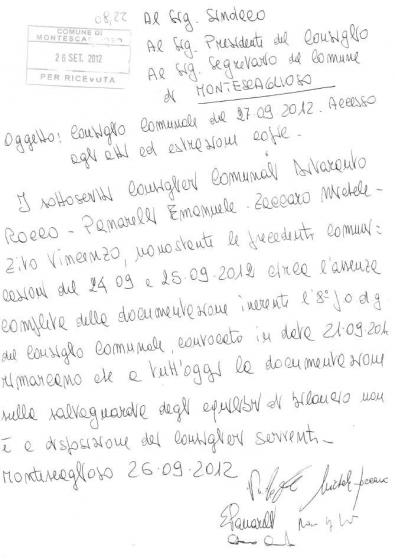 2280
COMUNE DI
MONTESCAGLIOSO
26 SET. 2012
PER RICEVUTA
Al Sig. Sindaco
Al Sig. Presidente del Consiglio
Al Sig. Segretario del Comune
di MONTESCAGLIOSO
Oggetto: Consiglio Comunale del 27.09.2012. Accesso
agli atti ed estrazione copie.
I sottoscritti Consiglieri Comunali Ditaranto
Rocco - Panarelli Emanuele - Zaccaro Michele -
Zito Vincenzo, nonostante le precedenti comuni=
cazioni del 24.09 e 25.09.2012 circa l'assenza
completa della documentazione inerente l'8° p. o dg
del Consiglio Comunale, convocato in data 21.09.201
rimarcano che a tutt'oggi la documentazione
sulla salvaguardia degli equilibri di bilancio non
è a disposizione dei Consiglieri scriventi -
Montescaglioso 26.09.2012
EPanarelli